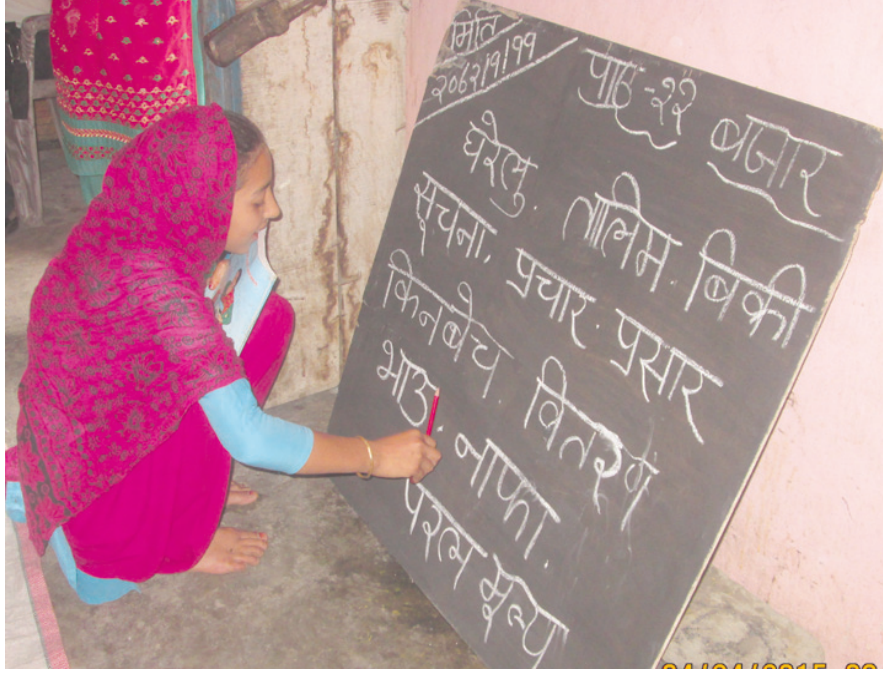 मिति
२०७२।१।११
पाठ -२२ बजार
घरेलु. तालिम. बिक्री
सूचना. प्रचार. प्रसार
किनबेच. वितरण
भाउ. नाफा.
परल मूल्य